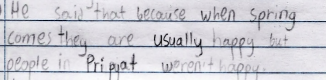 He said that because when spring
comes they are usually happy but
people in Pripyat weren't happy.